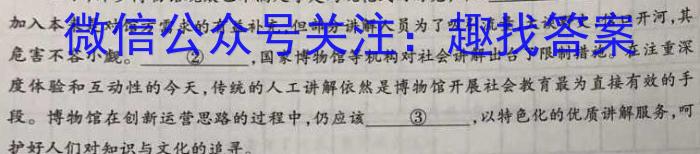 加入本
微信公众号关注：趣找答案
员为了
开河，其
危害不容小觑。②，国家博物馆等机构对社会讲解出台了限制措施。在注重深
度体验和互动性的今天，传统的人工讲解依然是博物馆开展社会教育最为直接有效的手
段。博物馆在创新运营思路的过程中，仍应该③，以特色化的优质讲解服务，呵
护好人们对知识与文化的追寻。